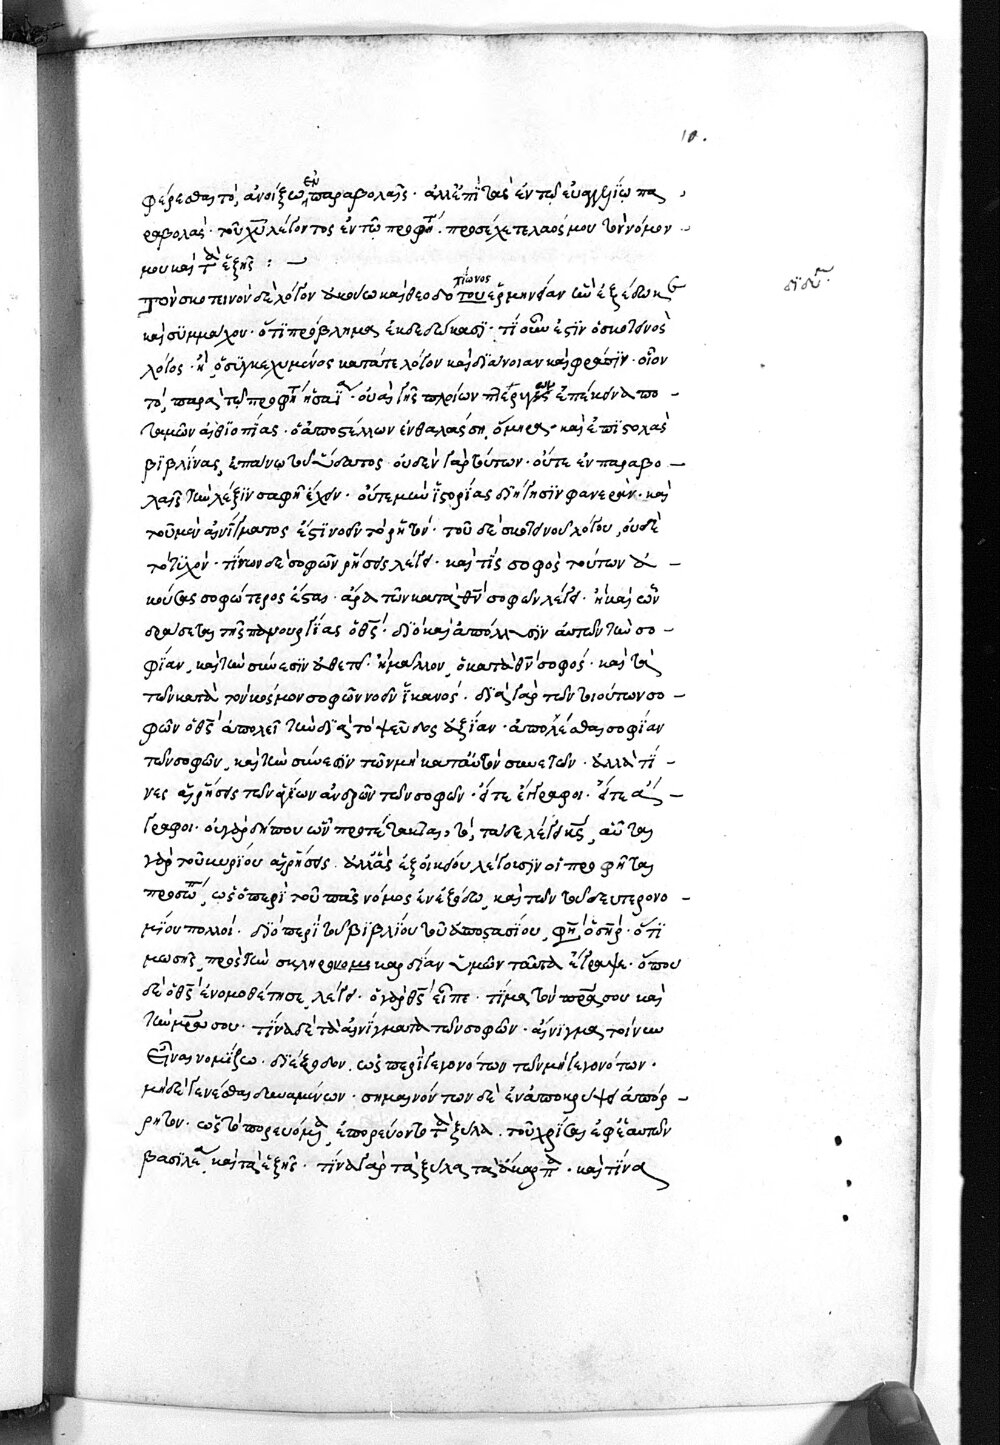 10.
φέρεσθαι τὸ, ἀνοίξω ἐν παραβολαῖς · ἀλλ' ἐπὶ τὰς ἐν τῷ εὐαγγελίῳ πα
ραβολάς · τοῦ χυ λέγοντος ἐν τῷ προφή . προσέχετε λαός μου τὸν νόμον
μου καὶ τὰ ἑξῆς : —
διδύ.
Τὸν σκοτεινὸν δὲ λόγον ἀκούω καὶ θεοδοτίωνος του ἑρμηνείαν
καὶ σύμμαχον · ὅτι πρόβλημα ἐκδεδώκασι · τί οὖν ἐστὶν ὁ σκοτεινὸς
λόγος · ἢ ὁ συγκεχυμένος κατά τε λόγον καὶ διάνοιαν καὶ φράσιν · οἷον
τὸ, παρὰ τῷ προφήτῃ ἡσαΐᾳ · οὐαὶ γῆς πλοίων πτέρυγες ἐπέκεινα πο
ταμῶν αἰθιοπίας · ὁ ἀποστέλλων ἐν θαλάσσῃ ὅμηρα · καὶ ἐπιστολὰς
βιβλίνας ἐπάνω τοῦ ὕδατος · οὐδὲν γὰρ τούτων · οὔτε ἐν παραβο
λαῖς τὴν λέξιν σαφῆ ἔχει · οὔτε μὴν ἱστορίας διήγησιν φανεράν · καὶ
τοῦ μὲν αἰνίγματος ἔστι νοεῖν τὸ ῥητόν · τοῦ δὲ σκοτεινοῦ λόγου, οὐδὲ
τὸ τυχόν · τίνων δὲ σοφῶν ῥήσεις λέγει · καὶ τίς σοφὸς τούτων ἀ
κούσας σοφώτερος ἔσται · ἆρα τῶν κατὰ θν σοφῶν λέγει · ἢ καὶ ὧν
δράσεται τῆς πανουργίας ὁ θς · διὸ καὶ ἀπόλλυσιν αὐτῶν τὴν σο
φίαν, καὶ τὴν σύνεσιν ἀθετεῖ · ἢ μᾶλλον, ὁ κατὰ θν σοφός · καὶ τὰ
τῶν κατὰ τὸν κόσμον σοφῶν νοεῖν ἱκανός · διὰ γὰρ τῶν τοιούτων σο
φῶν ὁ θς ἀπολεῖ τὴν διὰ τὸ ψεῦδος ἀξίαν · ἀπολέσθαι σοφίαν
τῶν σοφῶν, καὶ τὴν σύνεσιν τῶν μὴ κατ' αὐτὸν συνετῶν · ἀλλὰ τί
νες αἱ ῥήσεις τῶν ἁγίων ἀνδρῶν τῶν σοφῶν · εἴτε ἔγγραφοι · εἴτε ἄ
γραφοι · οὐ γὰρ δήπου ὧν προτέτακται, τό, τάδε λέγει κς, αὗται
γὰρ τοῦ κυρίου αἱ ῥήσεις · ἀλλ' ἃς ἐξ οἰκείου λέγουσιν οἱ προφῆται
προσώπου, ὡς ὁ περὶ τοῦ πάσχα νόμος ἐν ἐξόδῳ, καὶ τῶν τοῦ δευτερονο
μίου πολλοί · διὸ περὶ τοῦ βιβλίου τοῦ ἀποστασίου, φη ὁ σηρ · ὅτι
μωσῆς, πρὸς τὴν σκληροκαρδίαν ὑμῶν ταῦτα ἔγραψε · ὅπου
δὲ ὁ θς ἐνομοθέτησε, λέγει · ὁ γὰρ θς εἶπε · τίμα τὸν πρα σου καὶ
τὴν μρα σου · τίνα δὲ τὰ αἰνίγματα τῶν σοφῶν · αἴνιγμα τοίνυν
εἶναι νομίζω · διέξοδον, ὡς περὶ γεγονότων τῶν μὴ γεγονότων ·
μηδὲ γενέσθαι δυναμένων · σημαινόντων δὲ ἐν ἀποκρυφῇ ἀπόρ
ρητον · ὡς τὸ πορευόμενα ἐπορεύοντο τὰ ξύλα · τοῦ χρῖσαι ἐφ' ἑαυτῶν
βασιλέα, καὶ τὰ ἑξῆς · τίνα γὰρ τὰ ξύλα τὰ ἄκαρπα · καὶ τίνα